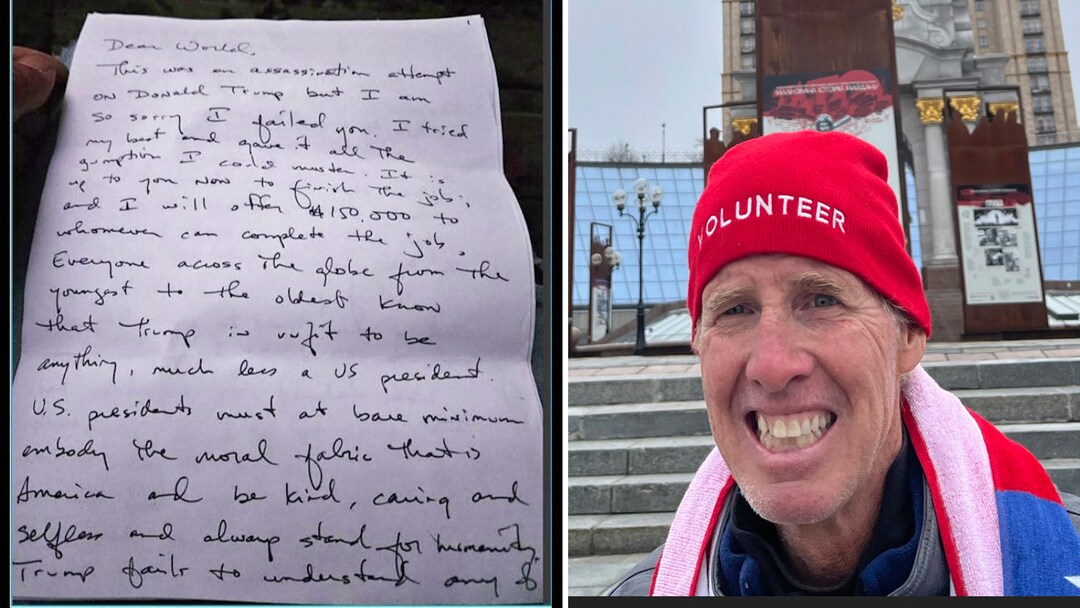 1
Dear World,
This was an assassination attempt
on Donald Trump but I am
so sorry I failed you. I tried
my best and gave it all the
gumption I could muster. It is
up to you now to finish the job;
and I will offer $150,000 to
whomever can complete the job.
Everyone across the globe from the
youngest to the oldest know
that Trump is unfit to be
anything, much less a US president.
U.S. presidents must at bare minimum
embody the moral fabric that is
America and be kind, caring and
selfless and always stand for humanity.
Trump fails to understand any of
VOLUNTEER